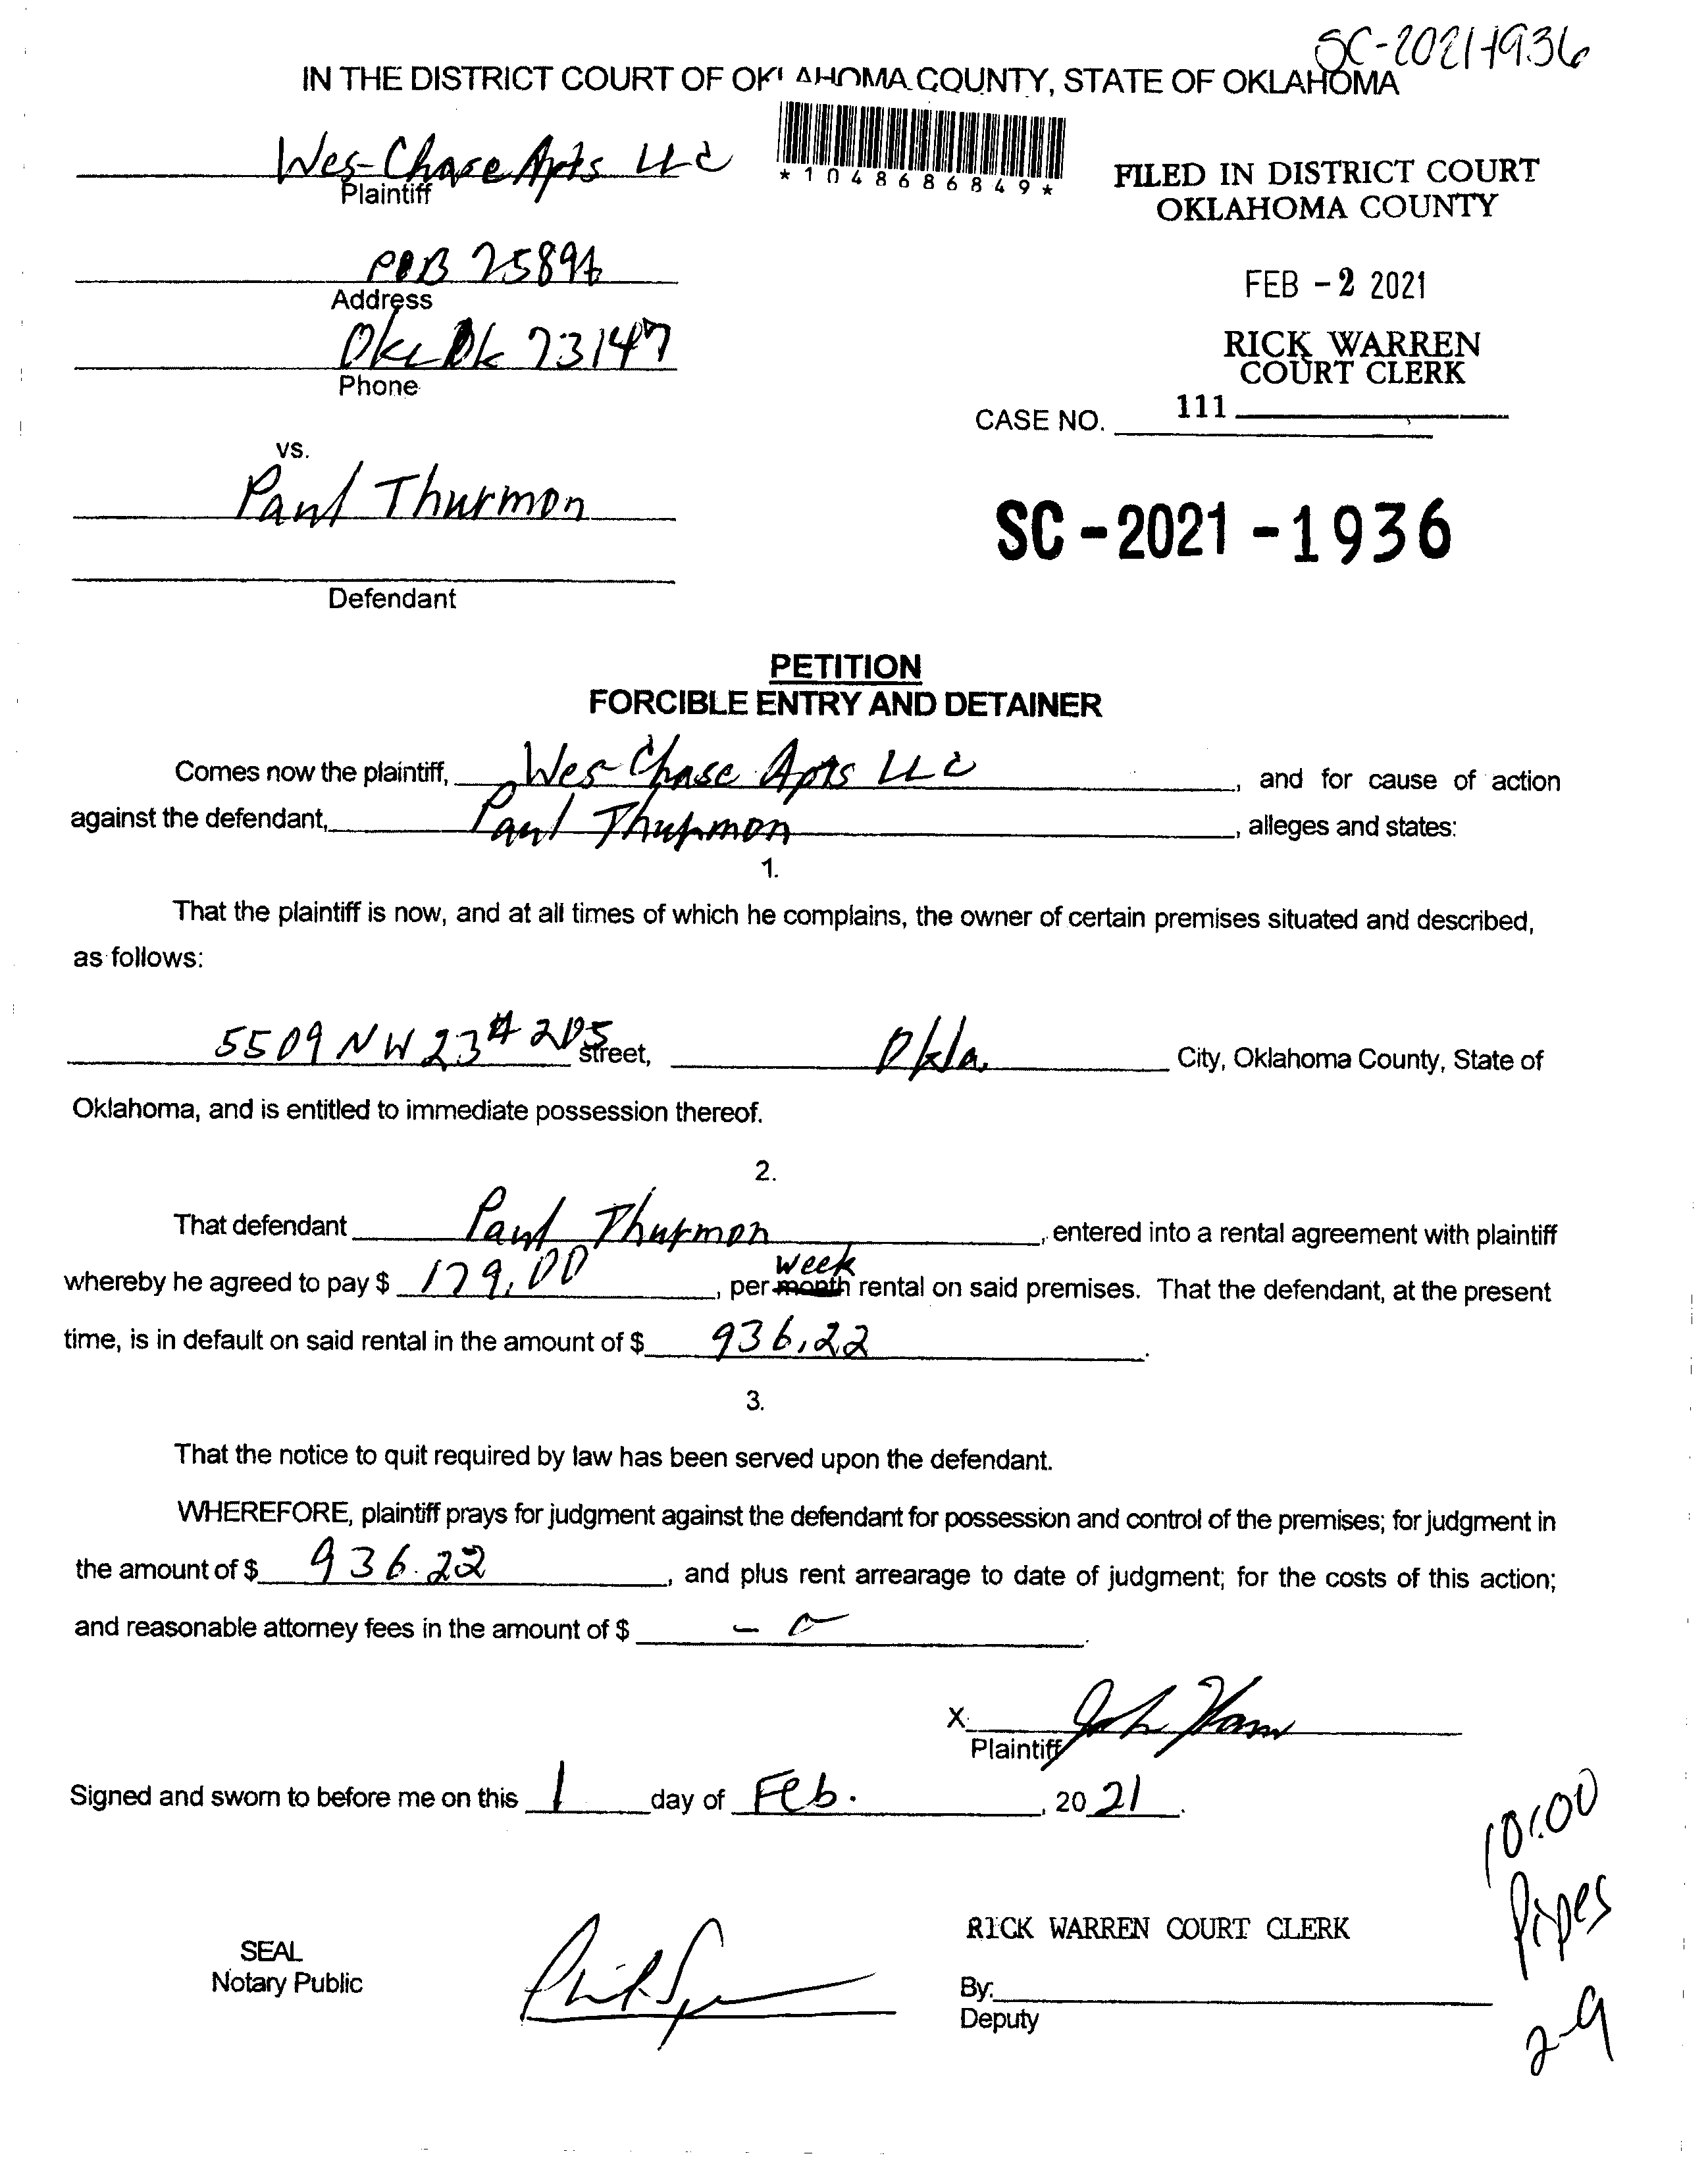 SC-2021-1936
IN THE DISTRICT COURT OF OKLAHOMA COUNTY, STATE OF OKLAHOMA
Wes-Chase Apts LLC
Plaintiff
*1048686849*
FILED IN DISTRICT COURT
OKLAHOMA COUNTY
POB 25894
Address
FEB -2 2021
OKC Ok 73147
Phone
RICK WARREN
COURT CLERK
CASE NO. 111
vs.
Paul Thurmon
SC-2021-1936
Defendant
PETITION
FORCIBLE ENTRY AND DETAINER
Comes now the plaintiff, Wes-Chase Apts LLC, and for cause of action
against the defendant, Paul Thurmon, alleges and states:
1.
That the plaintiff is now, and at all times of which he complains, the owner of certain premises situated and described,
as follows:
5509 NW 23 # 205 street, Okla. City, Oklahoma County, State of
Oklahoma, and is entitled to immediate possession thereof.
2.
That defendant Paul Thurmon, entered into a rental agreement with plaintiff
week
whereby he agreed to pay $ 179.00, per month rental on said premises. That the defendant, at the present
time, is in default on said rental in the amount of $ 936.22.
3.
That the notice to quit required by law has been served upon the defendant.
WHEREFORE, plaintiff prays for judgment against the defendant for possession and control of the premises; for judgment in
the amount of $ 936.22, and plus rent arrearage to date of judgment; for the costs of this action;
and reasonable attorney fees in the amount of $ - 0
X
Plaintiff
Signed and sworn to before me on this 1 day of Feb., 2021.
101.00
Pipes
2-9
SEAL
Notary Public
RICK WARREN COURT CLERK
By:
Deputy